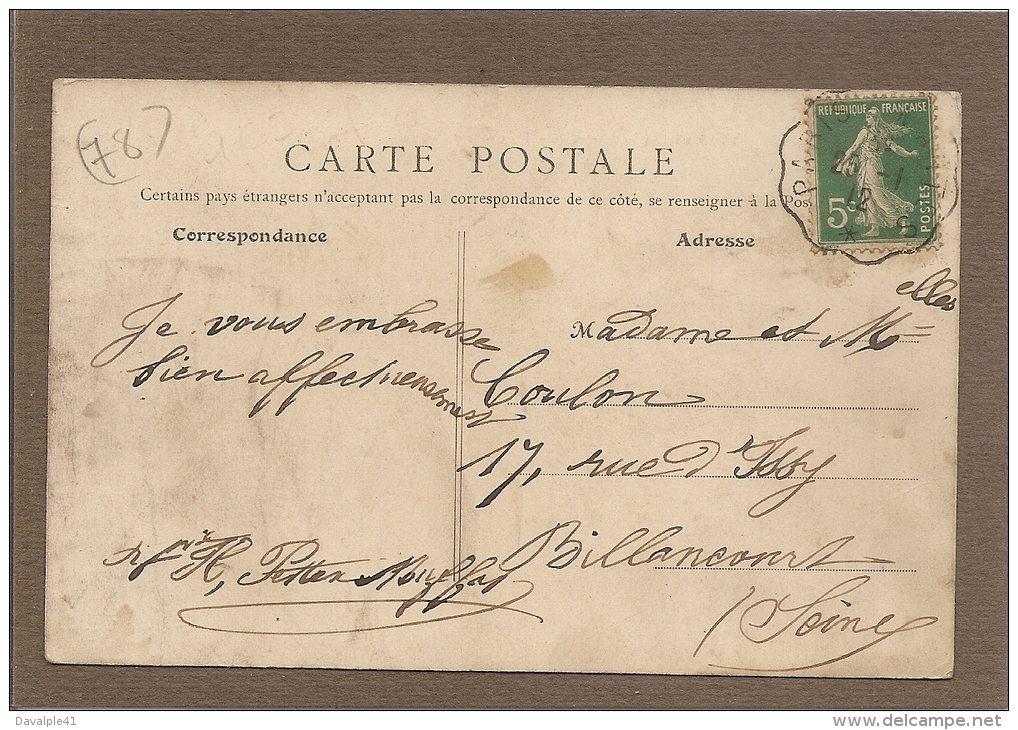 (787
CARTE POSTALE
Certains pays étrangers n'acceptent pas la correspondance de ce côté, se renseigner à la Pos
Correspondance
Adresse
REPUBLIQUE FRANÇAISE
5c
POSTES
PARIS
-1
12
Je vous embrasse
bien affectueusement
H. Petter
elles
Madame et M
Coulon
17, rue d'Issy
Billancourt
(Seine)
Davalple41
www.delcampe.net